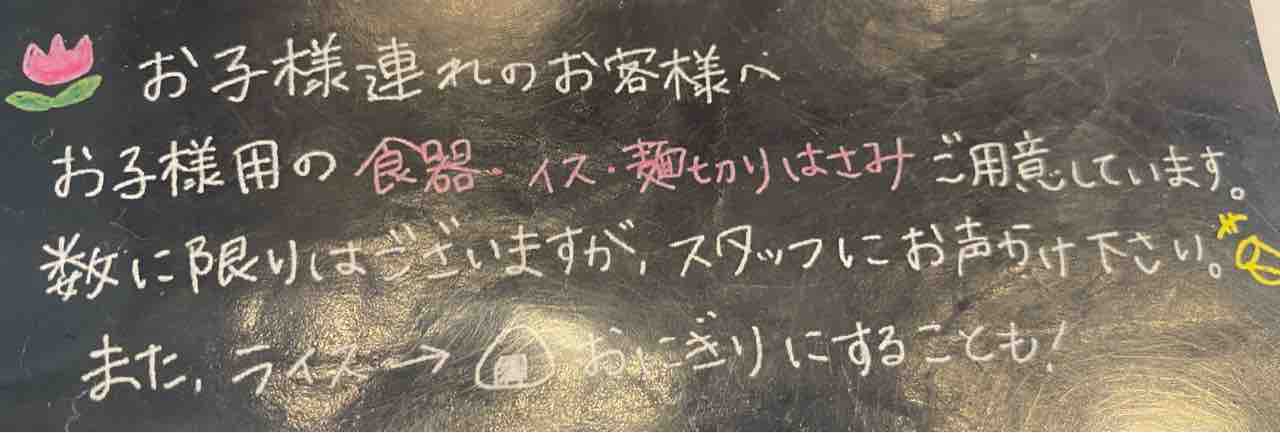 お子様連れのお客様へ
お子様用の食器・イス・麺切りはさみご用意しています。
数に限りはございますが、スタッフにお声かけ下さい。
また、ライス→おにぎりにすることも!